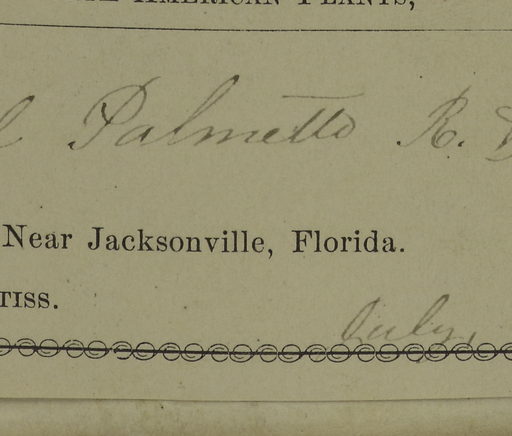 AMERICAN PLANTS,
Palmetto R.
Near Jacksonville, Florida.
TISS.
July,